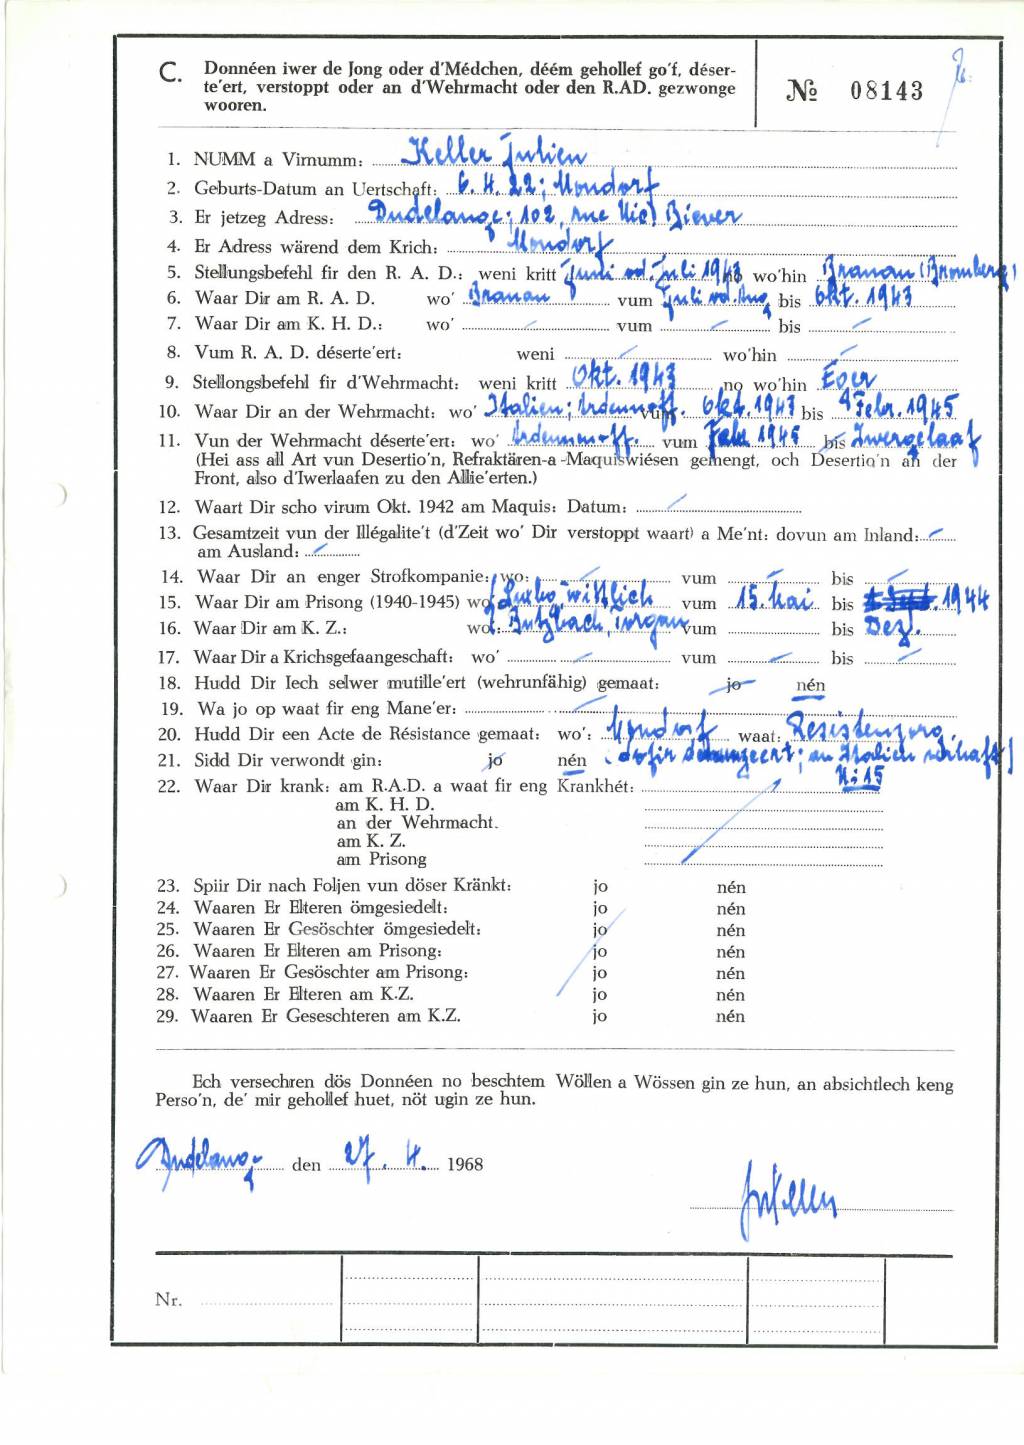 C. Donnéen iwer de Jong oder d'Médchen, déém gehollef go'f, déser-
te'ert, verstoppt oder an d'Wehrmacht oder den R.AD. gezwonge
wooren.
№ 08143
1. NUMM a Virnumm: Keller Julien
2. Geburts-Datum an Uertschaft: 6. 4. 22; Mondorf
3. Er jetzeg Adress: Dudelange; 102, rue Nic) Biever
4. Er Adress wärend dem Krich: Mondorf
5. Stellungsbefehl fir den R. A. D.: weni kritt Juni od. Juli 1943 no wo'hin Branau (Bromberg)
6. Waar Dir am R. A. D. wo' Branau vum Juli od. Aug bis Okt. 1943
7. Waar Dir am K. H. D.: wo' vum bis
8. Vum R. A. D. déserte'ert: weni wo'hin
9. Stellongsbefehl fir d'Wehrmacht: weni kritt Okt. 1943 no wo'hin Eger
10. Waar Dir an der Wehrmacht: wo' Italien; Ardennoff. vum Okt. 1943 bis Febr. 1945
11. Vun der Wehrmacht déserte'ert: wo' Ardennenoff. vum Febr 1945 bis Iwergelaaf
(Hei ass all Art vun Desertio'n, Refraktären-a -Maquiswiésen gemengt, och Desertio'n an der
Front, also d'Iwerlaafen zu den Allie'erten.)
12. Waart Dir scho virum Okt. 1942 am Maquis: Datum:
13. Gesamtzeit vun der Illégalite't (d'Zeit wo' Dir verstoppt waart) a Me'nt: dovun am Inland:
am Ausland:
14. Waar Dir an enger Strofkompanie: wo: vum bis
15. Waar Dir am Prison̈g (1940-1945) wo Luxbg, Wittlich vum 15. Mai bis 1944
16. Waar Dir am K. Z.: wo: Butzbach, Torgau vum bis Dez.
17. Waar Dir a Krichsgefaangeschaft: wo' vum bis
18. Hudd Dir Iech selwer mutille'ert (wehrunfähig) gemaat: jo nén
19. Wa jo op waat fir eng Mane'er:
20. Hudd Dir een Acte de Résistance gemaat: wo': Mondorf waat: Resistenzorg.
21. Sidd Dir verwondt gin: jo nén (dofir denunzéert; an Italien verhaft)
N: 15
22. Waar Dir krank: am R.A.D. a waat fir eng Krankhét:
am K. H. D.
an der Wehrmacht.
am K. Z.
am Prisong
23. Spiir Dir nach Foljen vun döser Kränkt: jo nén
24. Waaren Er Elteren ömgesiedelt: jo nén
25. Waaren Er Gesöschter ömgesiedelt: jo nén
26. Waaren Er Elteren am Prisong: jo nén
27. Waaren Er Gesöschter am Prisong: jo nén
28. Waaren Er Elteren am K.Z. jo nén
29. Waaren Er Geseschteren am K.Z. jo nén
Ech versechren dös Donnéen no beschtem Wöllen a Wössen gin ze hun, an absichtlech keng
Perso'n, de' mir gehollef huet, nöt ugin ze hun.
Dudelange den 27. 4. 1968
JKeller
Nr.